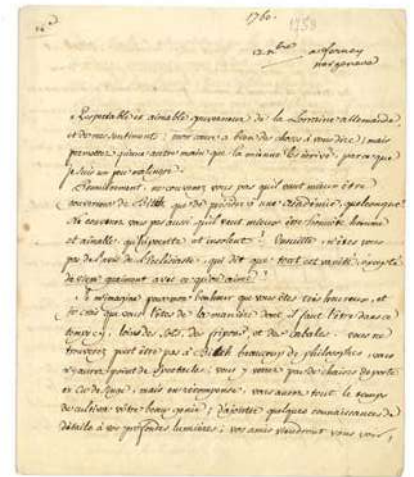 1760.
1759
12 9bre à ferney
par geneve
Respectable et aimable gouverneur de la Lorraine allemande,
et de mes sentiments ; mon cœur a bien des choses à vous dire ; mais
permettez qu'une autre main que la mienne les écrive, parce que
je suis un peu malingre.
Premierement, ne convenez vous pas qu'il vaut mieux être
gouverneur de Bitch que de présider à une académie quelconque ?
Ne convenez vous pas aussi qu'il vaut mieux être honnête homme
et aimable, qu'hypocrite et insolent ? Ensuite, n'êtes vous
pas de l'avis de l'Ecclésiaste, qui dit que tout est vanité excepté
de vivre gaiment avec ce qu'on aime ?
Je m'imagine pour mon bonheur que vous êtes très heureux, et
je crois que vous l'êtes de la manière dont il faut l'être dans ce
temps cy, loin des sots, des fripons, et des cabales. vous ne
trouverez peut être pas à Bitch beaucoup de philosophes, vous
n'y aurez point de spectacles, vous y verrez peu de chaises de poste
en cu de singe, mais en récompense, vous aurez tout le temps
de cultiver vôtre beau génie, d'ajouter quelques connaissances de
détails à vos profondes lumières ; vos amis viendront vous voir,